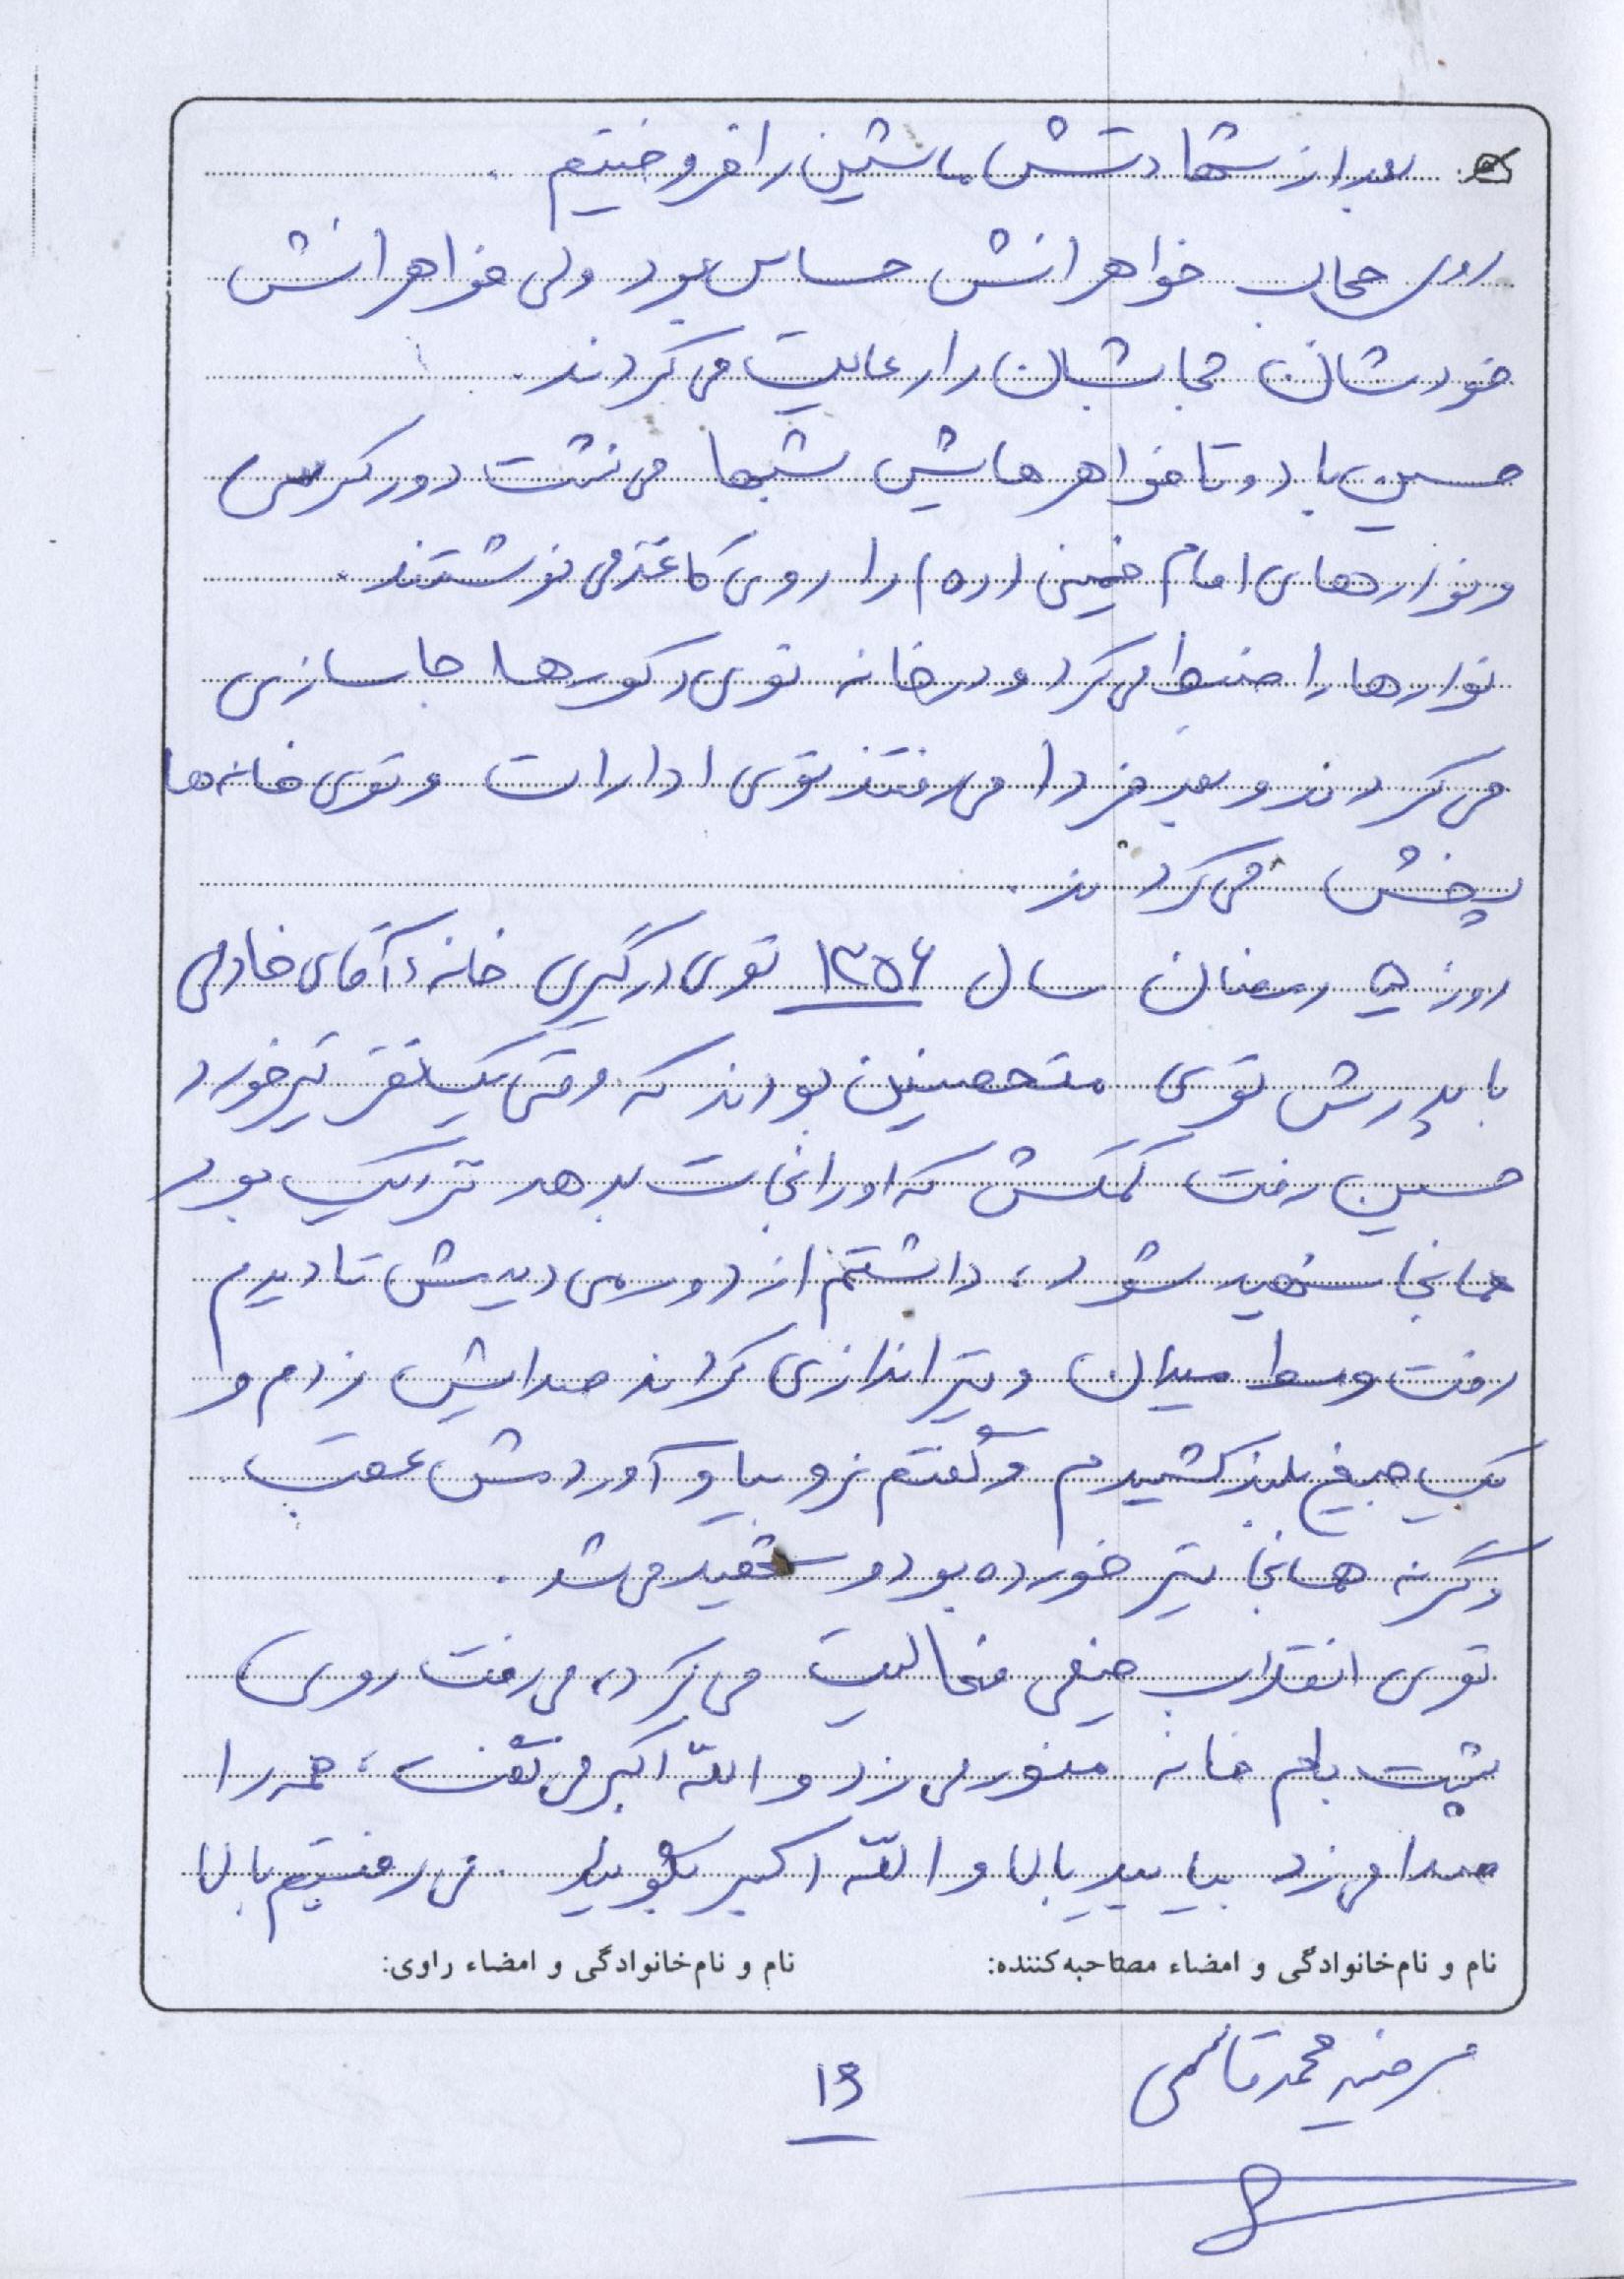 بعد از شهادتش ماشین را فروختیم.
روی حجاب خواهرانش حساس بود ولی خواهرانش
خودشان حجابشان را رعایت می‌کردند.
حسین با دو تا خواهرهایش شبها می‌نشست دور کرسی
و نوارهای امام خمینی (ره) را روی کاغذ می‌نوشتند.
نوارها را ضبط می‌کرد و در خانه توی دکورها جاسازی
می‌کردند و بعد فردا می‌رفتند توی ادارات و توی خانه‌ها
پخش می‌کردند.
روز ۵ رمضان سال ۱۳۵۶ توی درگیری خانهٔ آقای خادمی
با پدرش توی متحصنین بودند که وقتی یک نفر تیر خورد
حسین رفت کمکش که او را نجات بدهد نزدیک بود
همانجا شهید شود، داشتم از دور می‌دیدمش تا دیدم
رفت وسط میدان و تیراندازی کردند صدایش زدم و
یک جیغ بلند کشیدم و گفتم نرو بیا و آوردمش عقب
وگرنه همانجا تیر خورده بود و شهید می‌شد.
توی انقلاب خیلی فعالیت می‌کرد، می‌رفت روی
پشت بام خانه منور می‌زد و الله اکبر می‌گفت، همه را
صدا می‌زد بیایید بالا و الله اکبر بگویید. می‌رفتیم بالا
نام و نام‌خانوادگی و امضاء مصاحبه‌کننده: نام و نام‌خانوادگی و امضاء راوی:
مرضیه محمدقاسمی
۱۶